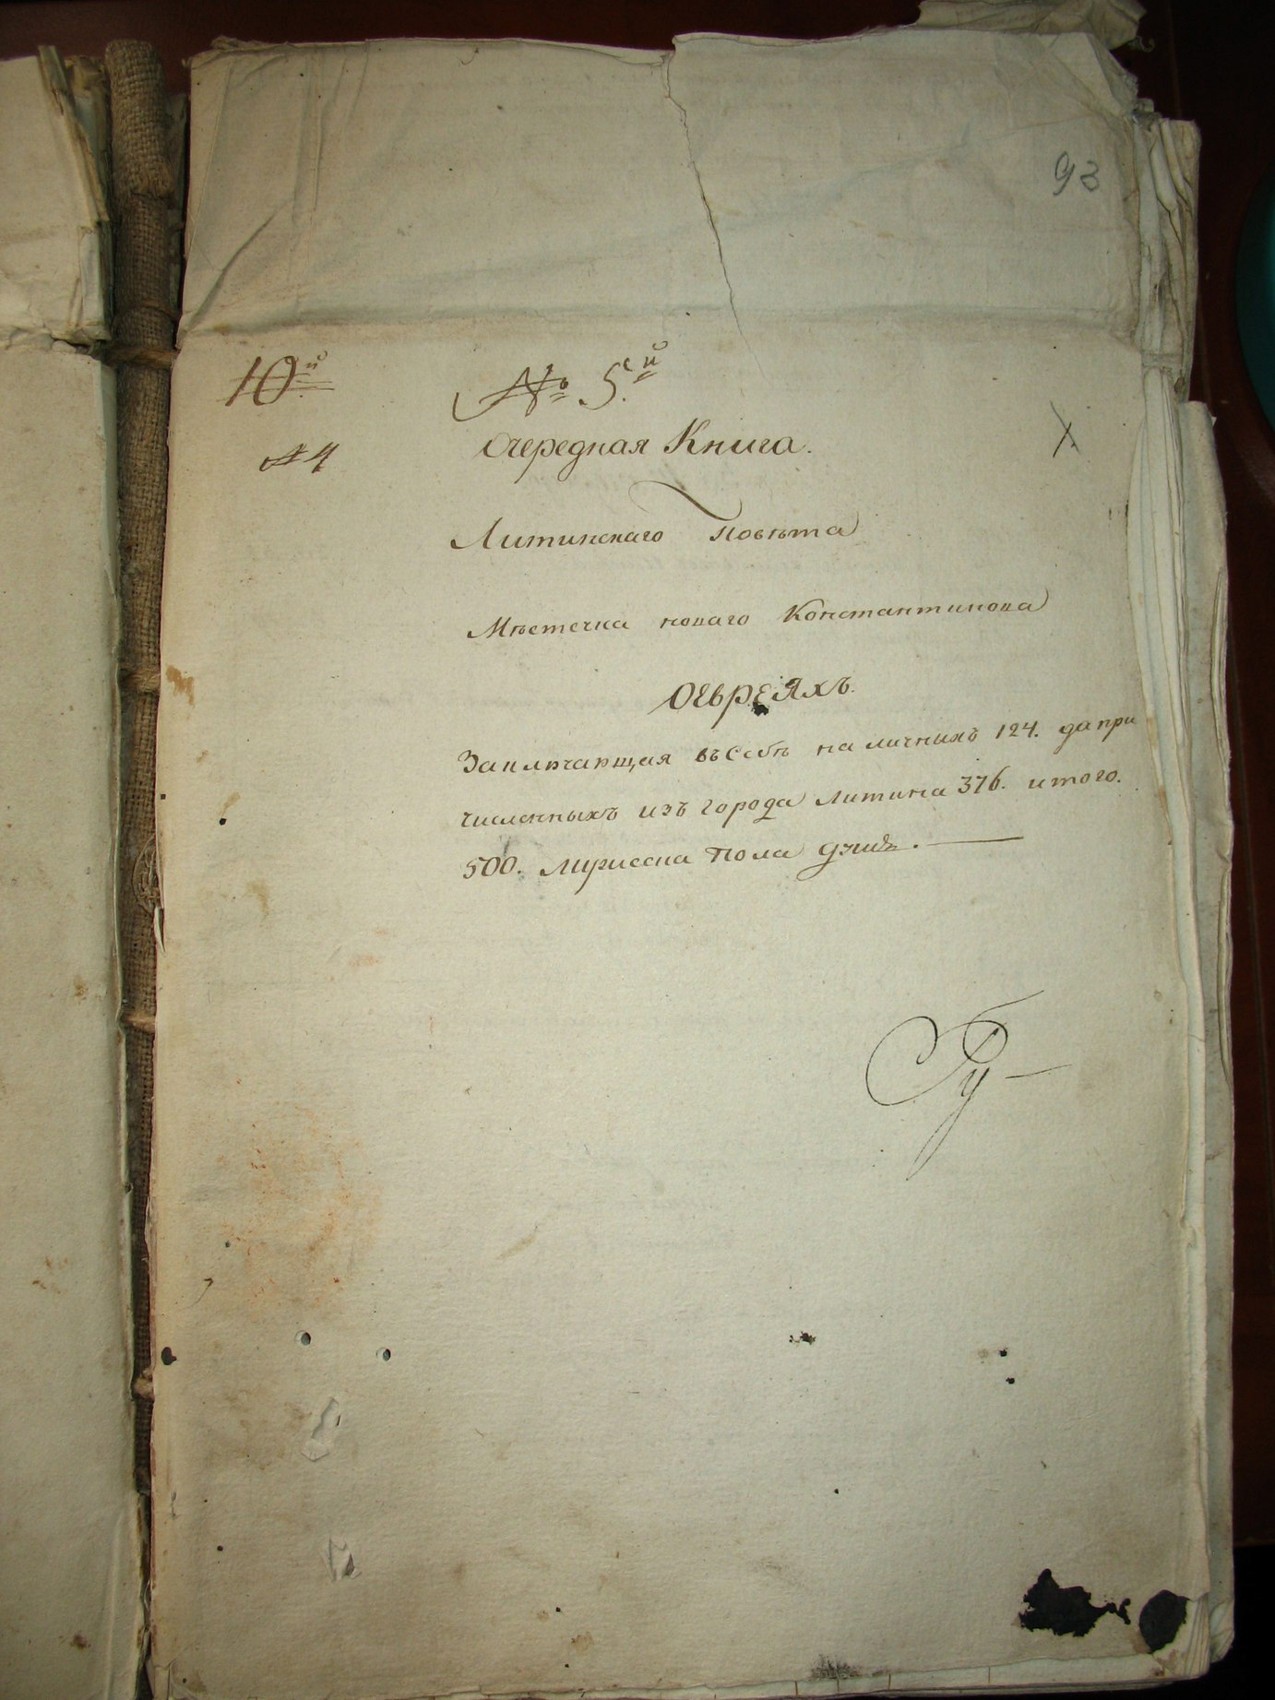 93
10й
№ 5й
№ 4
Очередная Книга.
Литинскаго Повѣта
Мѣстечка новаго Константинова
О Евреяхъ.
Заключающая въ Себѣ на личныхъ 124. да при
численныхъ изъ города Литина 376. итого.
500. Мужеска Пола душъ.